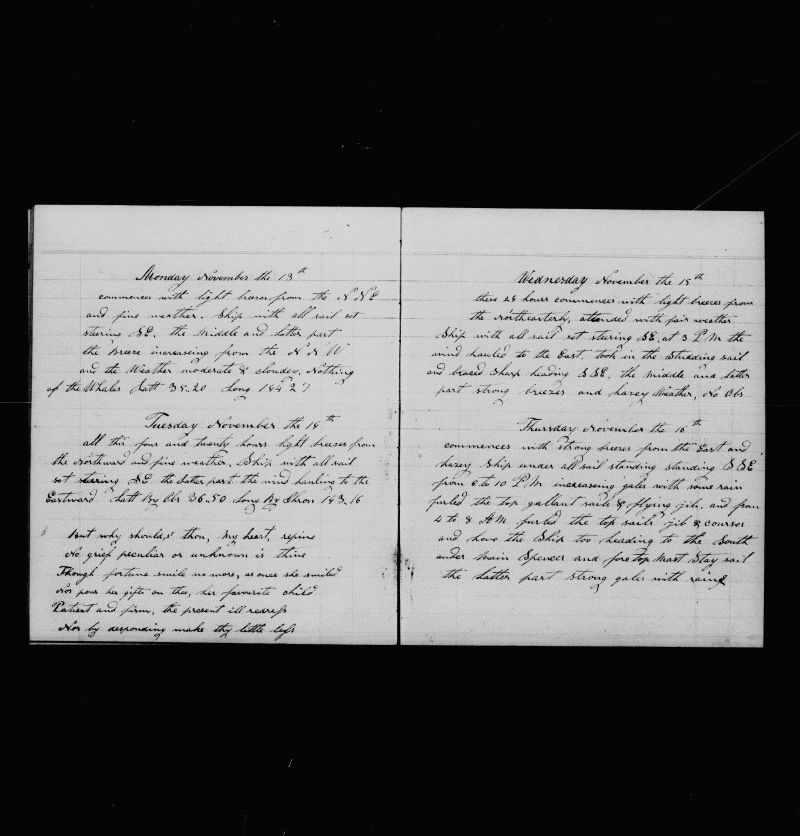 Monday November the 13th
commences with light breezes from the N N E
and fine weather. Ship with all sail set
steering SE. the Middle and latter part
the breeze increasing from the N N W
and the Weather moderate & cloudey. Nothing
of the Whales Latt 35.20 Long 144 27
Tuesday November the 14th
all this four and twenty hours light breezes from
the Northward and fine weather. Ship with all sail
set steering SE the latter part the wind hauling to the
Eastward Latt By Obs 36-50 Long By Chron 143-16
But why shouldst thou, my heart, repine
No grief peculiar or unknown is thine
Though fortune smile no more, as once she smiled
Nor pour her gifts on thee, her favourite child
Patient and firm, the present ill redress
Nor by desponding make thy little less
Wednesday November the 15th
these 24 hours commences with light breezes from
the Northeasterly, attended with fair weather
Ship with all sail set steering SE. at 3 P.M the
wind hauled to the East. took in the Studding sail
and braced Sharp heading S S E. the middle and latter
part strong breezes and hazey Weather, No Obs
Thursday November the 16th
commences with strong breeze from the East and
hazey Ship under all sail standing standing S S E
from 6 to 10 P.M increasing gales with some rain
furled the top gallant sails & flying jib, and from
4 to 8 A M furled the top sails jib & courses
and hove the Ship too heading to the South
under Main Spencer and fore Top Mast Stay sail
the Latter part strong gales with raing